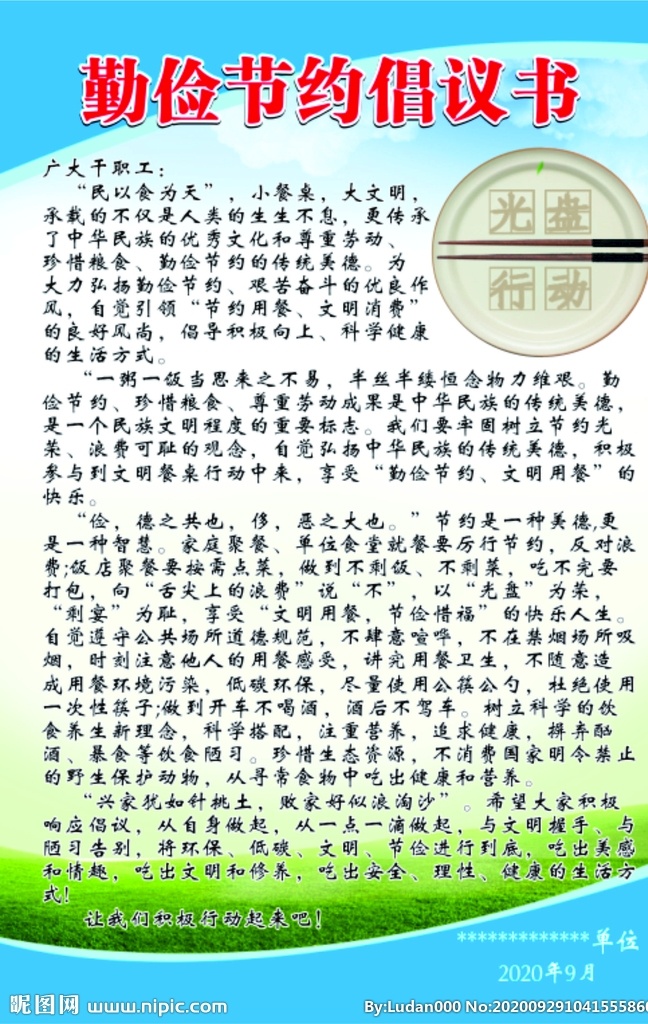 勤俭节约倡议书
广大干职工：
“民以食为天”，小餐桌，大文明，
承载的不仅是人类的生生不息，更传承
了中华民族的优秀文化和尊重劳动、
珍惜粮食、勤俭节约的传统美德。为
大力弘扬勤俭节约、艰苦奋斗的优良作
风，自觉引领“节约用餐、文明消费”
的良好风尚，倡导积极向上、科学健康
的生活方式。
光盘
行动
“一粥一饭当思来之不易，半丝半缕恒念物力维艰。勤
俭节约、珍惜粮食、尊重劳动成果是中华民族的传统美德，
是一个民族文明程度的重要标志。我们要牢固树立节约光
荣、浪费可耻的观念，自觉弘扬中华民族的传统美德，积极
参与到文明餐桌行动中来，享受“勤俭节约、文明用餐”的
快乐。
“俭，德之共也，侈，恶之大也。”节约是一种美德,更
是一种智慧。家庭聚餐、单位食堂就餐要厉行节约，反对浪
费;饭店聚餐要按需点菜，做到不剩饭、不剩菜，吃不完要
打包，向“舌尖上的浪费”说“不”，以“光盘”为荣，
“剩宴”为耻，享受“文明用餐，节俭惜福”的快乐人生。
自觉遵守公共场所道德规范，不肆意喧哗，不在禁烟场所吸
烟，时刻注意他人的用餐感受，讲究用餐卫生，不随意造
成用餐环境污染，低碳环保，尽量使用公筷公勺，杜绝使用
一次性筷子;做到开车不喝酒，酒后不驾车。树立科学的饮
食养生新理念，科学搭配，注重营养，追求健康，摒弃酗
酒、暴食等饮食陋习。珍惜生态资源，不消费国家明令禁止
的野生保护动物，从寻常食物中吃出健康和营养。
“兴家犹如针桃土，败家好似浪淘沙”。希望大家积极
响应倡议，从自身做起，从一点一滴做起，与文明握手、与
陋习告别，将环保、低碳、文明、节俭进行到底，吃出美感
和情趣，吃出文明和修养，吃出安全、理性、健康的生活方
式!
让我们积极行动起来吧!
*************单位
2020年9月
昵图网 www.nipic.com
By:Ludan000 No:20200929104155586